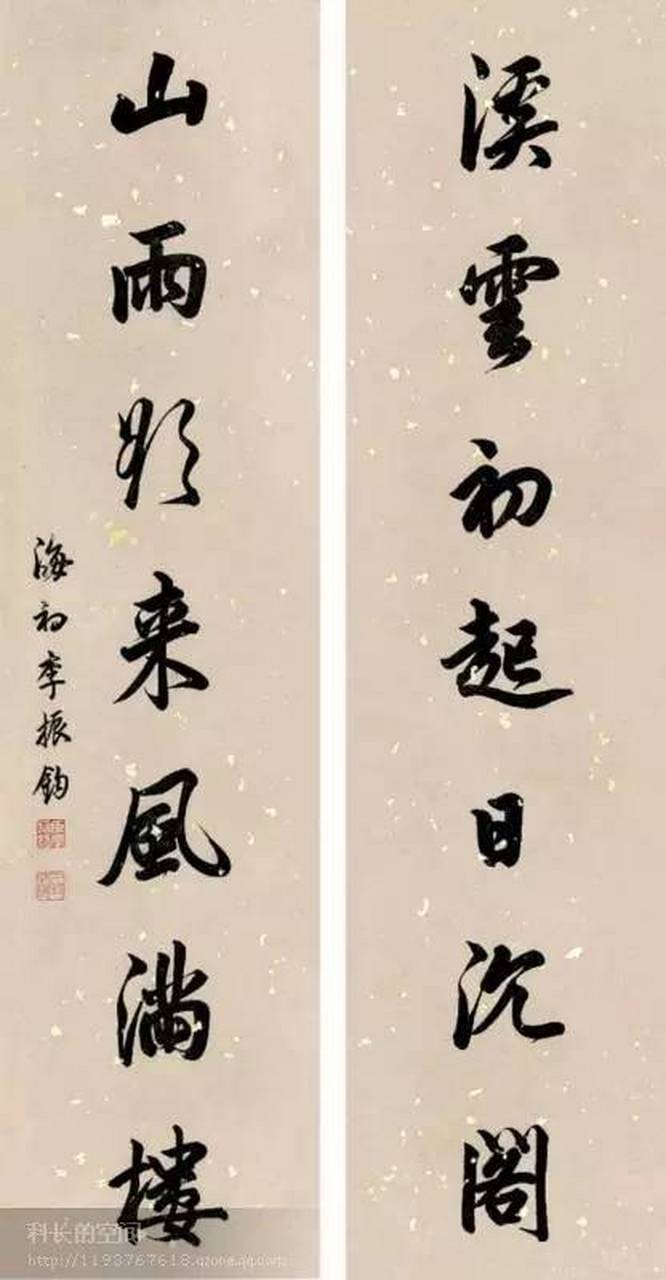 溪雲初起日沉閣
山雨欲来風滿樓
海初李振鈞
科长的空间
http://1193767618.qzone.qq.com